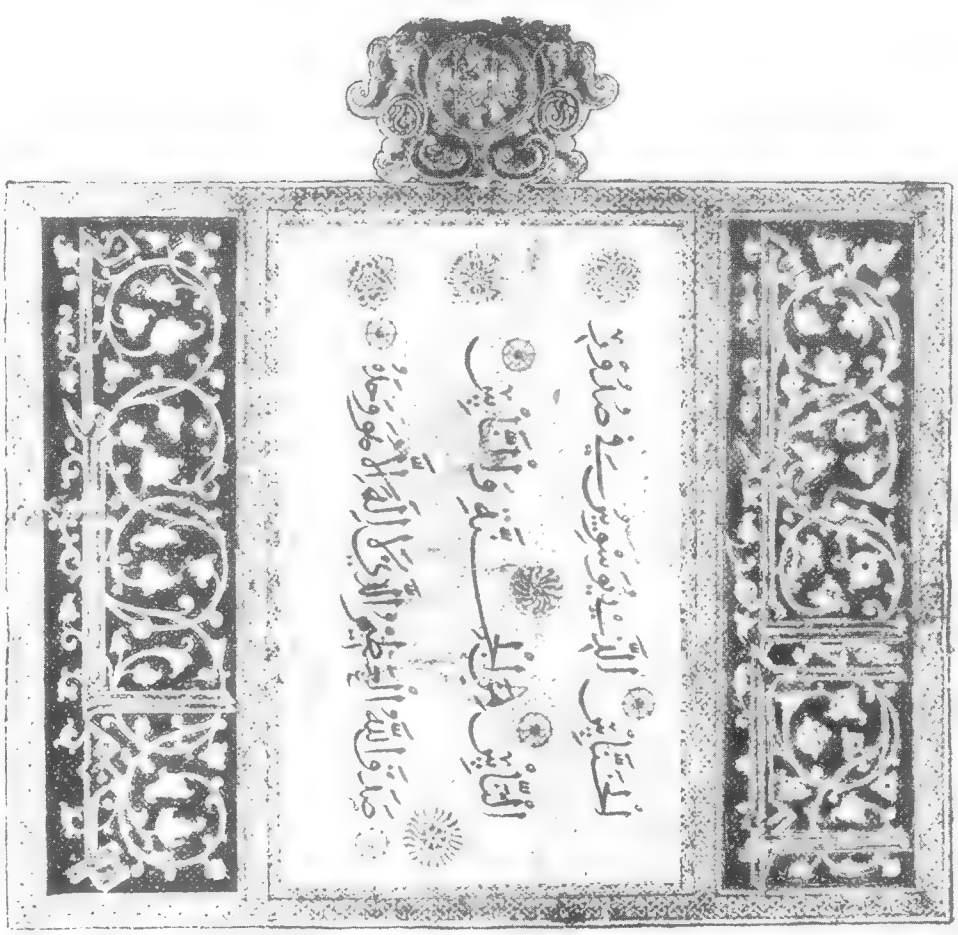 الْخَنَّاسِ الَّذِي يُوَسْوِسُ فِي صُدُورِ
النَّاسِ مِنَ الْجِنَّةِ وَالنَّاسِ
صَدَقَ اللهُ الْعَظِيمُ الَّذِي لَا إِلَهَ إِلَّا هُوَ وَحْدَهُ